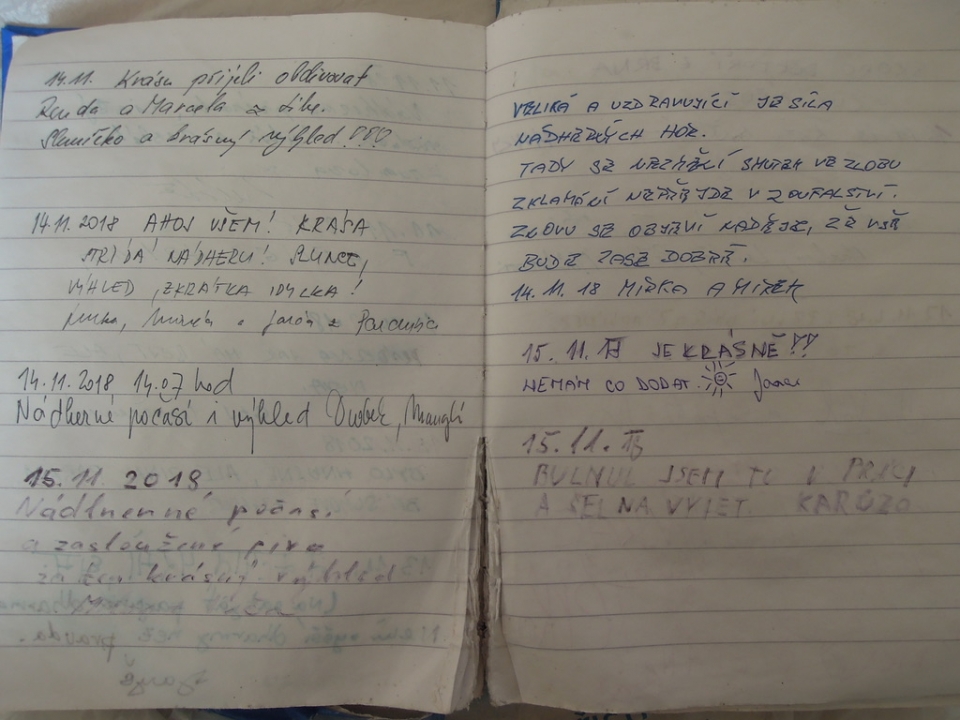 14.11. Krásu přijeli obdivovat
Renda a Marcela z
Sluníčko a krásný výhled!!!
14.11.2018 AHOJ VŠEM! KRÁSA
STŘÍDÁ NÁDHERU! SLUNCE,
VÝHLED, ZKRÁTKA IDYLKA!
14.11.2018 14.07 hod
Nádherné počasí i výhled
15.11.2018
Nádherné počasí
a zasloužené pivo
za ten krásný výhled
pravda.
VELIKÁ A UZDRAVUJÍCÍ JE SÍLA
NÁDHERNÝCH HOR.
TADY SE NEZMĚNÍ SMUTEK VE ZLOBU
ZKLAMÁNÍ NEPŘEJDE V ZOUFALSTVÍ.
ZNOVU SE OBJEVÍ NADĚJE, ŽE VŠE
BUDE ZASE DOBRÉ.
14.11.18 MIRKA A MÍREK
15.11.18 JE KRÁSNĚ!!
NEMÁM CO DODAT.
15.11.18
JSEM TU
A ŠEL NA VÝLET. KARŮZO